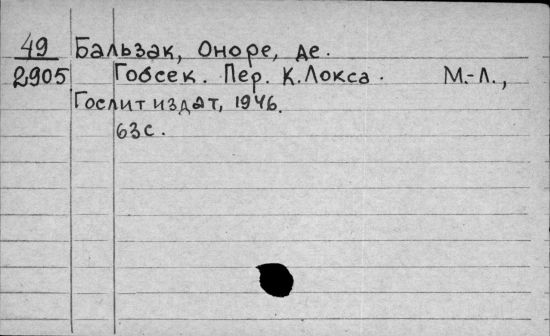 49 Бальзак, Оноре, де.
2905 Гобсек. Пер. К. Локса. М.-Л.,
Гослитиздат, 1946.
63с.